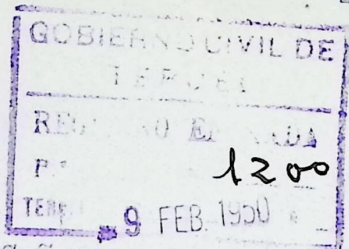 GOBIERNO CIVIL DE
TERUEL
REGISTRO ENTRADA
1200
9 FEB. 1950